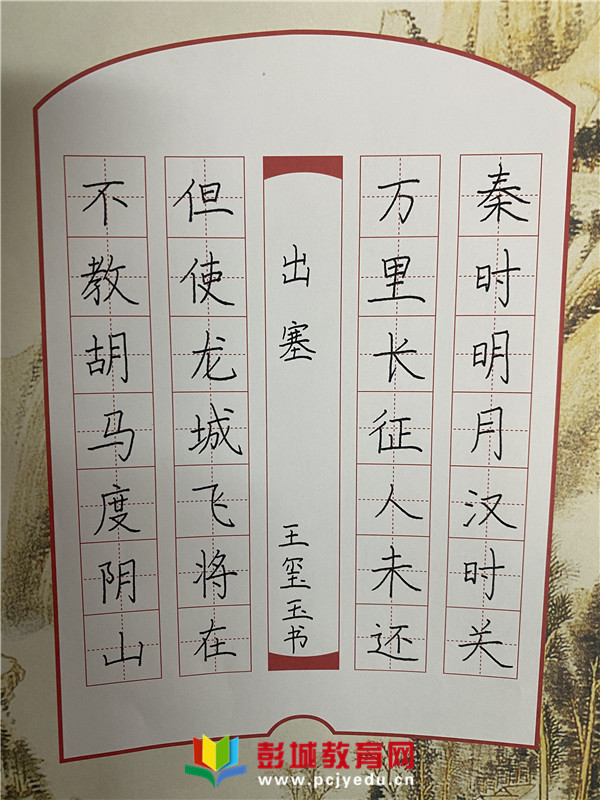 秦时明月汉时关
万里长征人未还
出塞
王玺玉书
但使龙城飞将在
不教胡马度阴山
彭城教育网
www.pcjyedu.cn